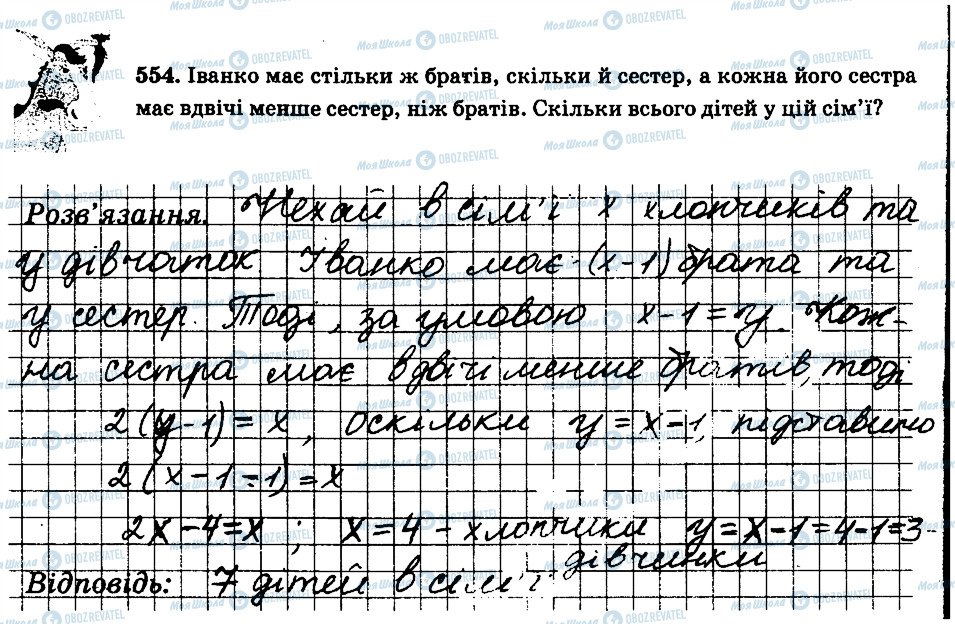 554. Іванко має стільки ж братів, скільки й сестер, а кожна його сестра
має вдвічі менше сестер, ніж братів. Скільки всього дітей у цій сім’ї?
Розв’язання. Нехай в сім’ї x хлопчиків та
y дівчаток. Іванко має (x-1) брата та
y сестер. Тоді, за умовою x-1=y. Кож-
на сестра має вдвічі менше братів, тоді
2(y-1)=x, оскільки y=x-1, підставимо
2(x-1-1)=x
2x-4=x; x=4 - хлопчики y=x-1=4-1=3-
дівчинки
Відповідь: 7 дітей в сім’ї